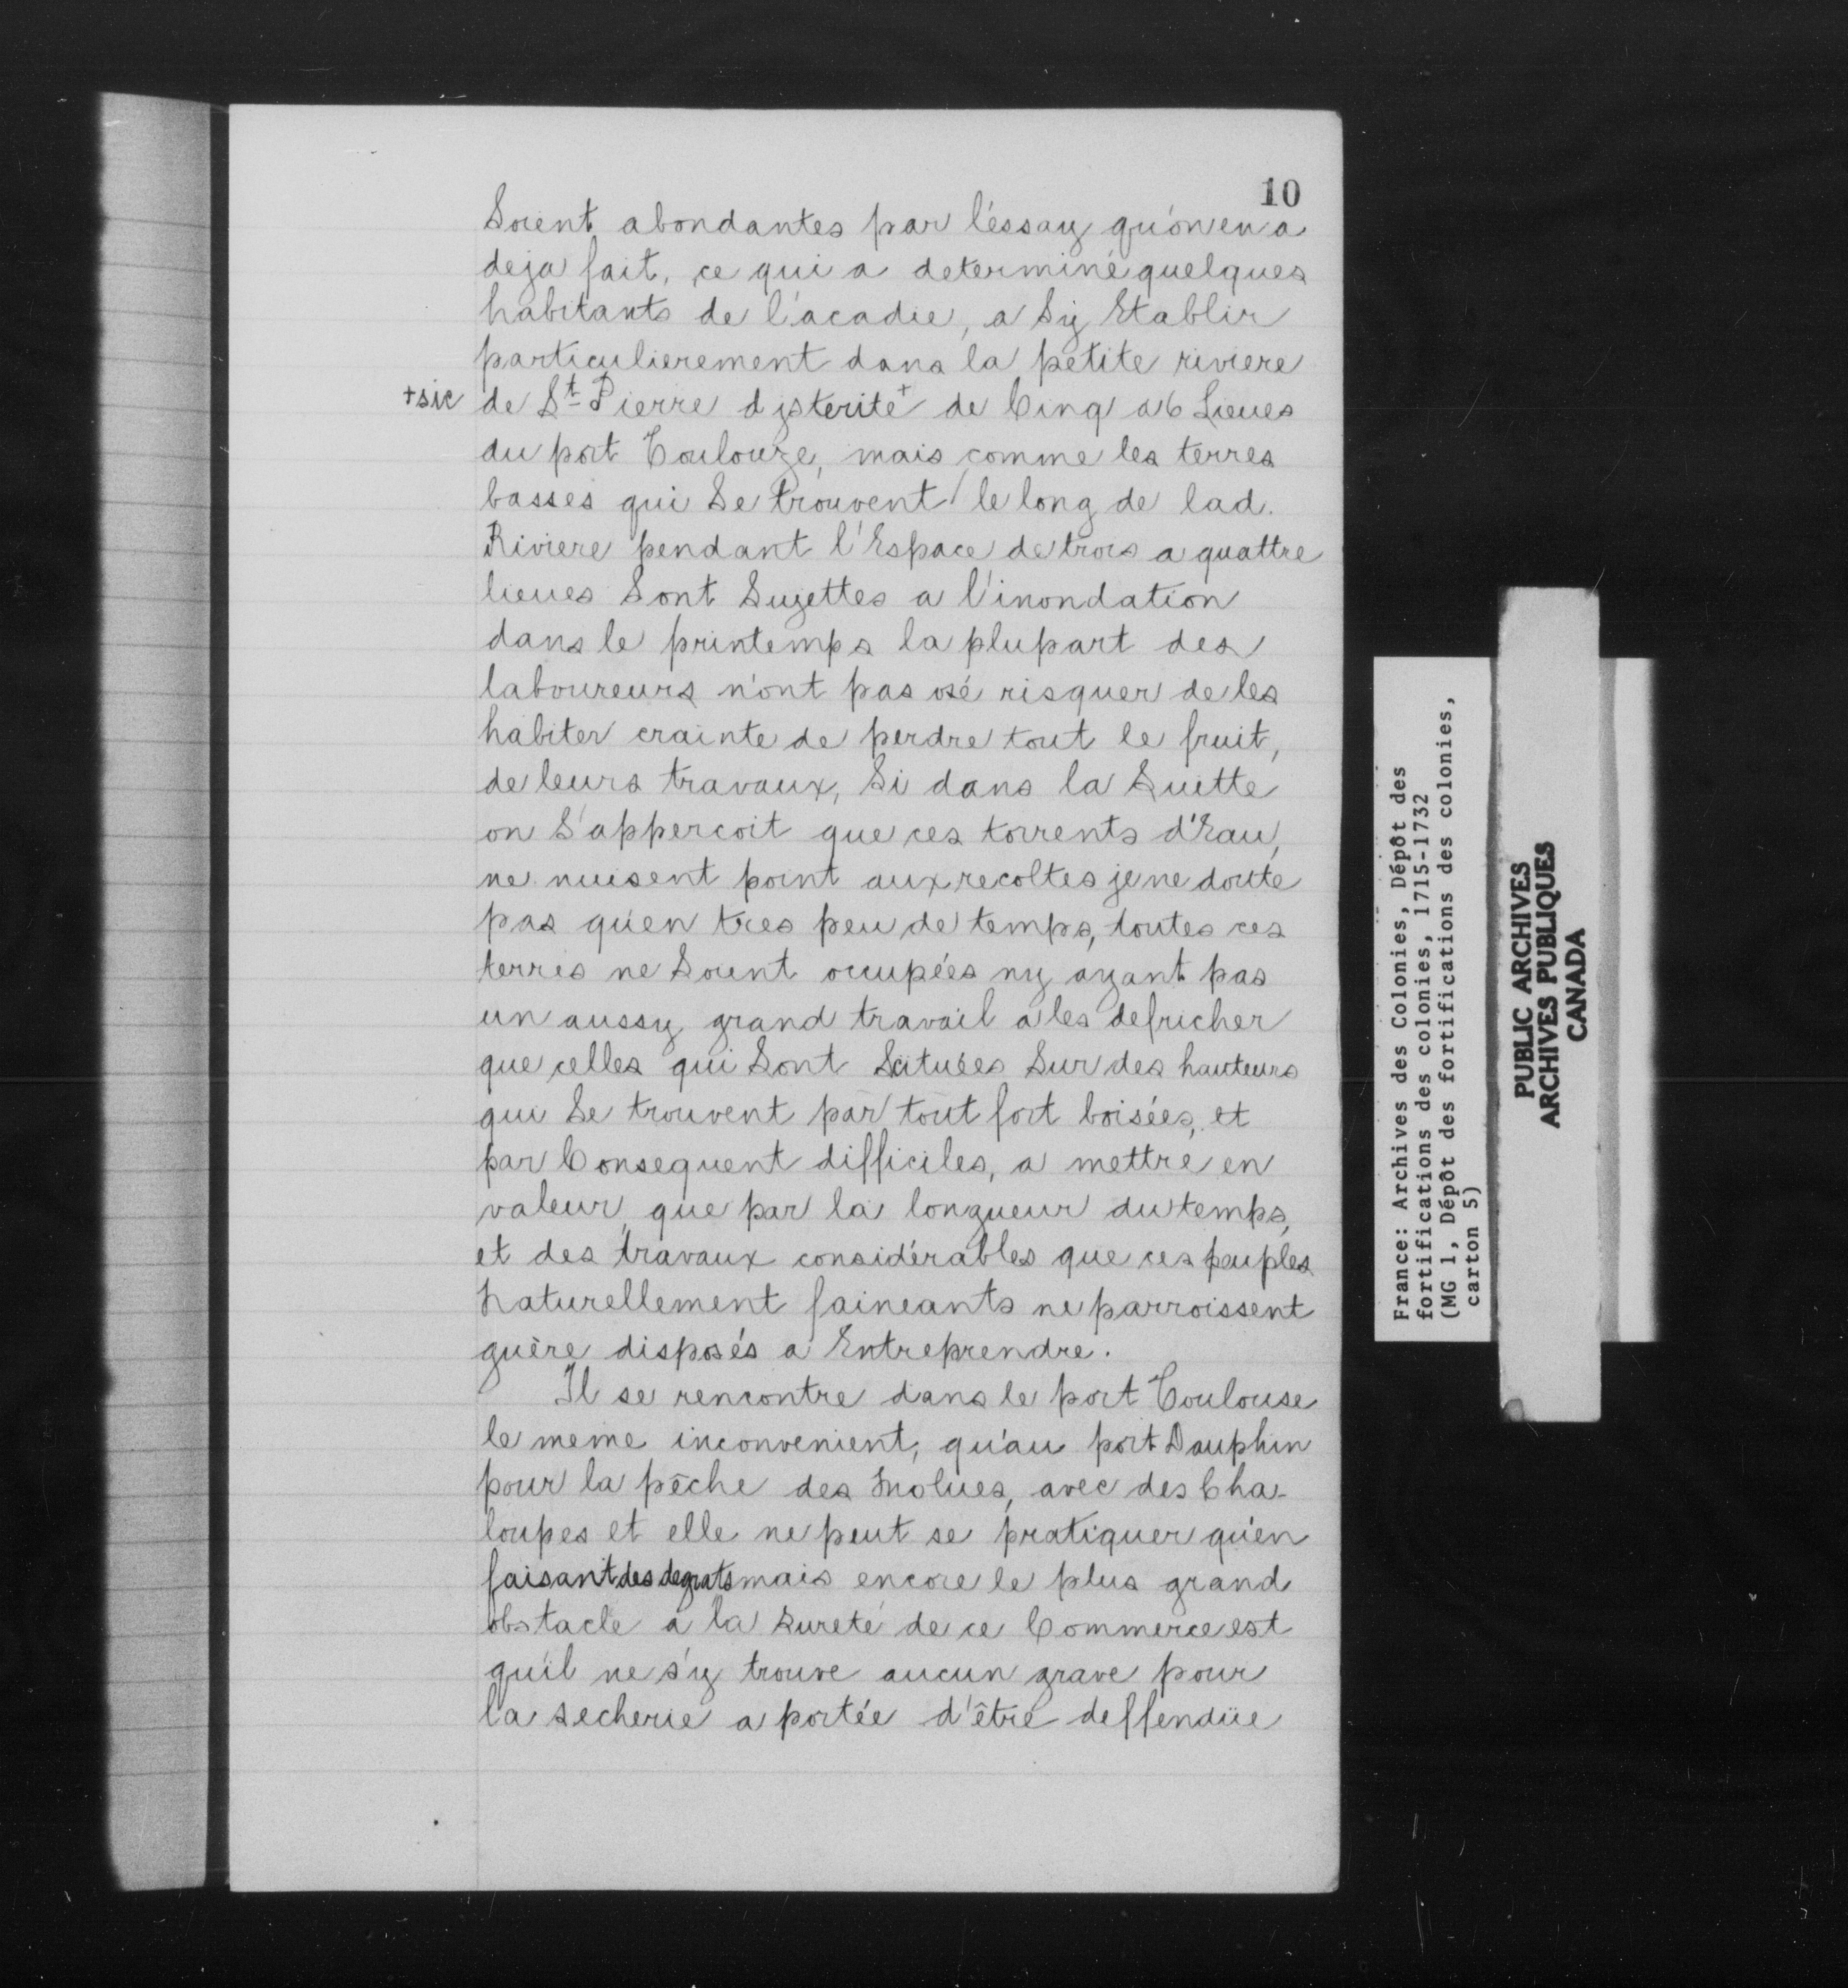 10
Soient abondantes par l'éssay qu'on en a
deja fait, ce qui a determiné quelques
habitants de l'acadie, a Sy Etablir
particulierement dans la petite riviere
+sic de St Pierre dysterité+ de Cinq a 6 Lieues
du port Toulouze, mais comme les terres
basses qui Se trouvent le long de lad.
Riviere pendant l'Espace de trois a quattre
lieues Sont Sujettes a l'inondation
dans le printemps la plupart des
laboureurs n'ont pas osé risquer de les
habiter crainte de perdre tout le fruit,
de leurs travaux, Si dans la Suitte
on S'appercoit que ces torrents d'Eau,
ne nuisent point aux recoltes je ne doute
pas qu'en tres peu de temps, toutes ces
terres ne Soient occupées ny ayant pas
un aussy grand travail a les defricher
que celles qui Sont Scituées Sur des hauteurs
qui Se trouvent par tout fort boisées, et
par Consequent difficiles, a mettre en
valeur, que par la longueur du temps,
et des travaux considérables que ces peuples
Naturellement faineants ne parroissent
guère disposés a Entreprendre.
Il se rencontre dans le port Toulouse
le meme inconvenient, qu'au port Dauphin
pour la pêche des Molues, avec des Cha-
loupes et elle ne peut se pratiquer qu'en
faisant des degrats mais encore le plus grand
obstacle a la Sureté de ce Commerce est
qu'il ne s'y trouve aucun grave pour
la secherie a portée d'être deffendüe
France: Archives des Colonies, Dépôt des
fortifications des colonies, 1715-1732
(MG 1, Dépôt des fortifications des colonies,
carton 5)
PUBLIC ARCHIVES
ARCHIVES PUBLIQUES
CANADA